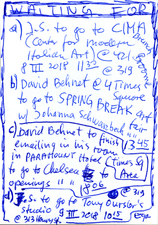 WAITING FOR
a) J.S. to go to CIMA
(Center for modern
Italian Art) @ 421
8 III 2018 11 @ 319
b) David Behnet @ 4 Times
Square
to go to SPRING BREAK art
w/ Johanna fair
c) David Behnet to finish
emailing in his room 1345
in PARAMOUNT Hotel (Times Sq
to go to Chelsea Area)
openings " "
1806 @ 319
d) J.S. to go to Tony Oursler's
studio 9 III 2018 1015
@ 319